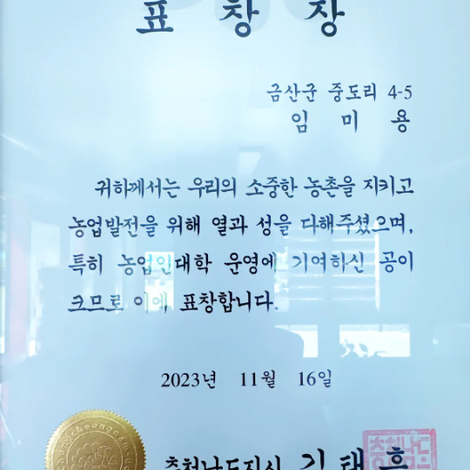 표 창 장
금산군 중도리 4-5
임 미 용
귀하께서는 우리의 소중한 농촌을 지키고
농업발전을 위해 열과 성을 다해주셨으며,
특히 농업인대학 운영에 기여하신 공이
크므로 이에 표창합니다.
2023년 11월 16일
충청남도지사 김태흠